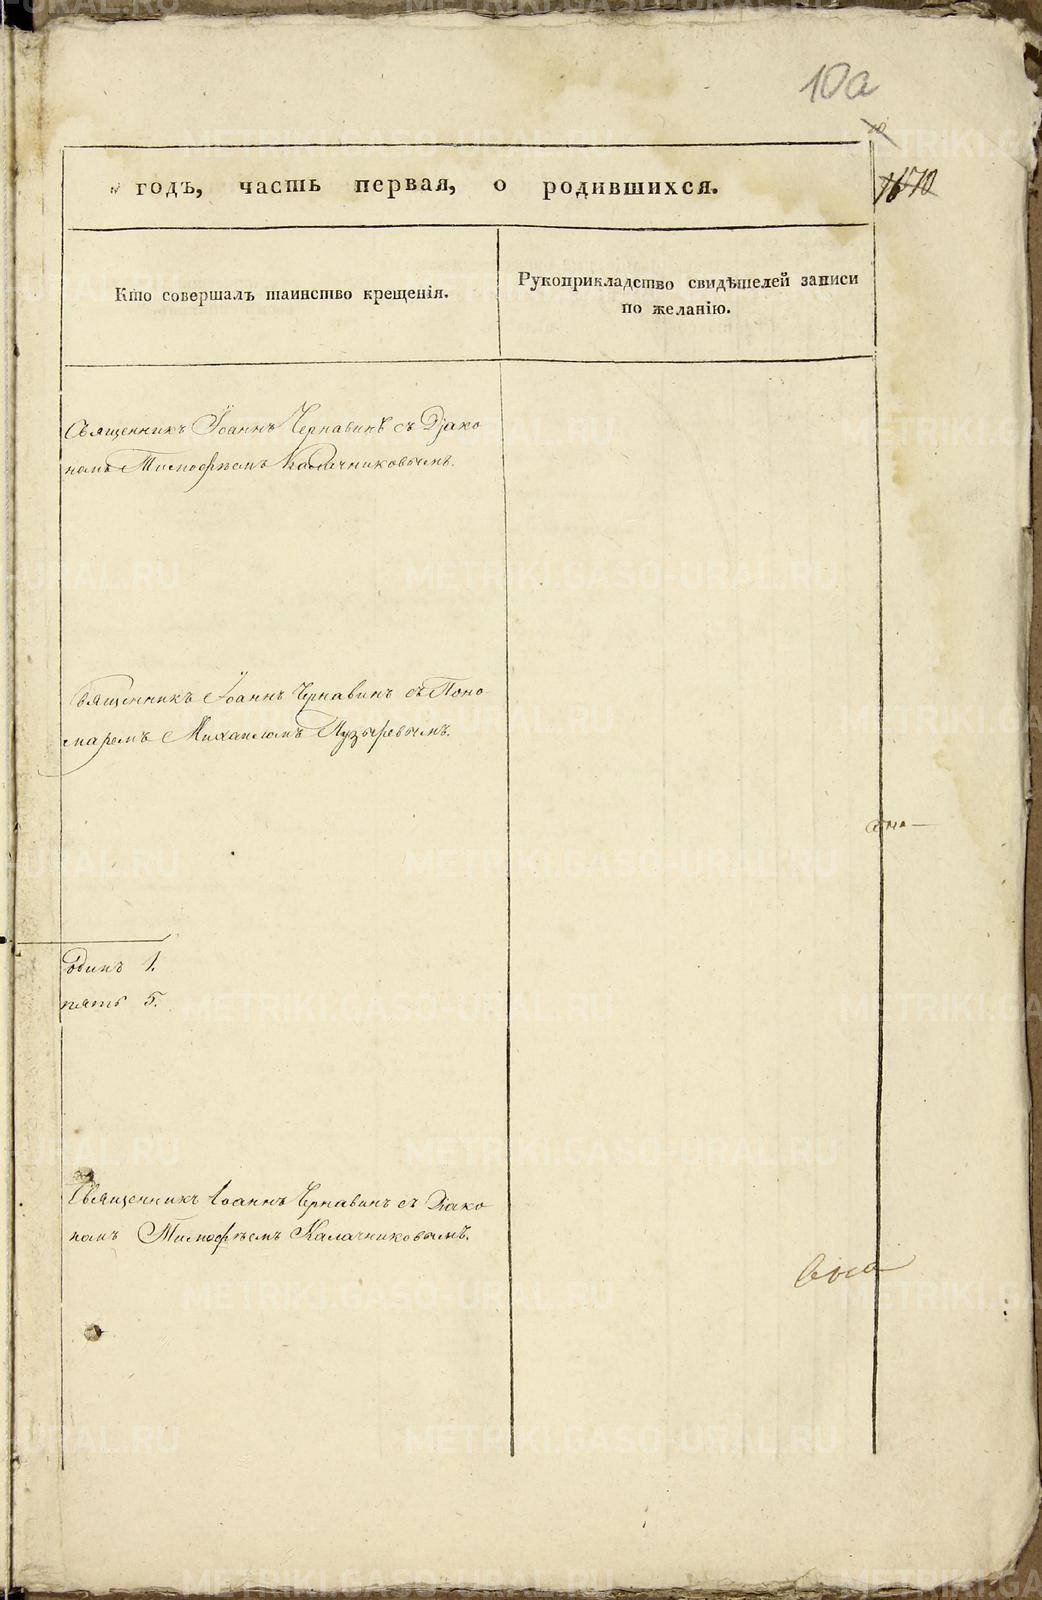 10а
годъ, часть первая, о родившихся.
Кто совершалъ таинство крещенія.
Рукоприкладство свидѣтелей записи
по желанію.
Священникъ Іоаннъ Чернавинъ съ Діако
номъ Тимофѣемъ Калачниковымъ.
Священникъ Іоаннъ Чернавинъ съ Поно
маремъ Михаиломъ Пузыревымъ.
Одинъ 1.
пять 5.
Священникъ Іоаннъ Чернавинъ съ Діако
номъ Тимофѣемъ Калачниковымъ.
METRIKI.GASO-URAL.RU